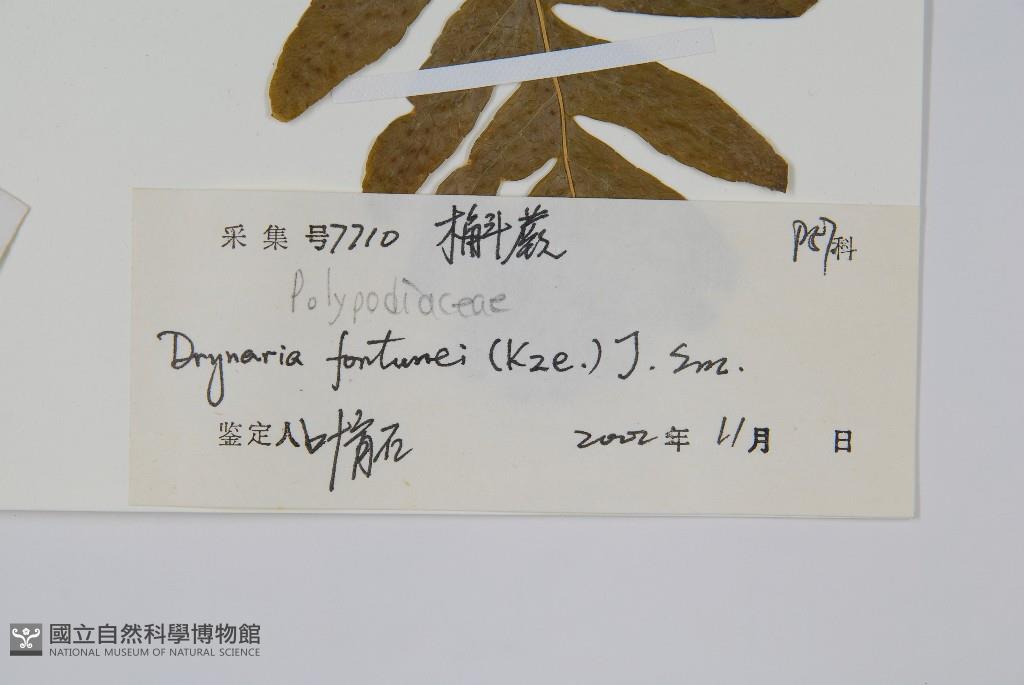 采集号7710 槲蕨 P57科
Polypodiaceae
Drynaria fortunei (Kze.) J. Sm.
鉴定人 叶育石 2002年 11月 日
國立自然科學博物館
NATIONAL MUSEUM OF NATURAL SCIENCE